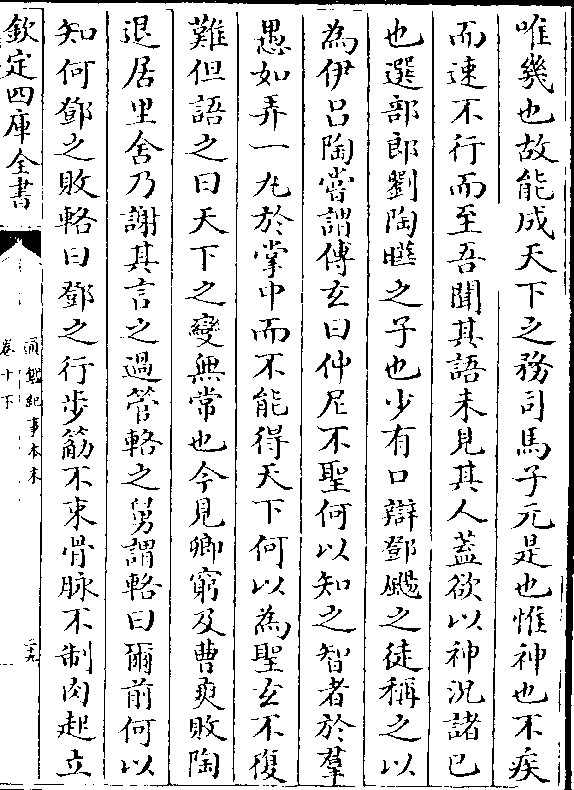 唯幾也故能成天下之務司馬子元是也惟神也不疾
而速不行而至吾聞其語未見其人蓋欲以神況諸己
也選部郎劉陶曄之子也少有口辯鄧颺之徒稱之以
為伊呂陶嘗謂傅玄曰仲尼不聖何以知之智者於羣
愚如弄一丸於掌中而不能得天下何以為聖玄不復
難但語之曰天下之變無常也今見卿窮及曹爽敗陶
退居里舍乃謝其言之過管輅之舅謂輅曰爾前何以
知何鄧之敗輅曰鄧之行步筋不束骨脉不制肉起立
欽定四庫全書
通鑑紀事本末
卷十下
二十九